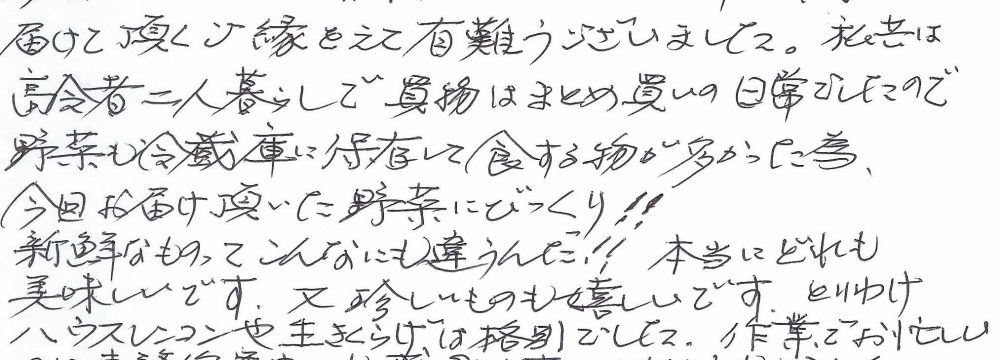 届けて頂くご縁をえて有難うございました。私共は
高令者二人暮らしで買物はまとめ買いの日常でしたので
野菜も冷蔵庫に保存して食する物が多かった為、
今回お届け頂いた野菜にびっくり!!
新鮮なものってこんなにも違うんだ!! 本当にどれも
美味しいです。又珍しいものも嬉しいです。とりわけ
ハウスレンコンや生きくらげは格別でした。作業でお忙しい